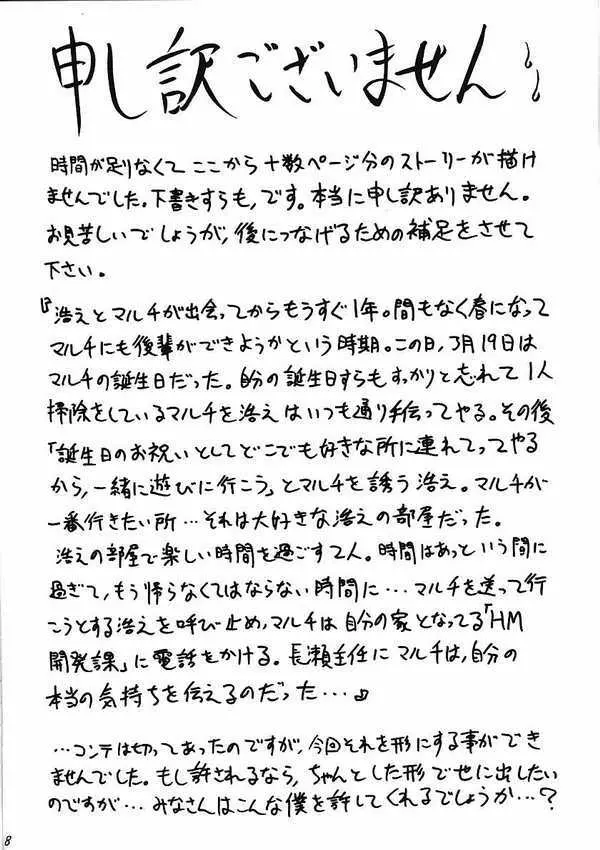 申し訳ございません
時間が足りなくて ここから 十数ページ分のストーリーが描け
ませんでした。下書きすらも、です。本当に申し訳ありません。
お見苦しいでしょうが、後につなげるための補足をさせて
下さい。
『浩之とマルチが出会ってからもうすぐ1年。間もなく春になって
マルチにも後輩ができようかという時期。この日、3月19日は
マルチの誕生日だった。自分の誕生日すらもすっかりと忘れて1人
掃除をしているマルチを浩之はいつも通り手伝ってやる。その後
「誕生日のお祝いとしてどこでも好きな所に連れてってやる
から、一緒に遊びに行こう」とマルチを誘う浩之。マルチが
一番行きたい所…それは大好きな浩之の部屋だった。
浩之の部屋で楽しい時間を過ごす2人。時間はあっという間に
過ぎて、もう帰らなくてはならない時間に…マルチを送って行
こうとする浩之を呼び止め、マルチは自分の家となってる「HM
開発課」に電話をかける。長瀬主任にマルチは、自分の
本当の気持ちを伝えるのだった…』
…コンテは切ってあったのですが、今回それを形にする事ができ
ませんでした。もし許されるなら、ちゃんとした形で世に出したい
のですが… みなさんはこんな僕を許してくれるでしょうか…?
8